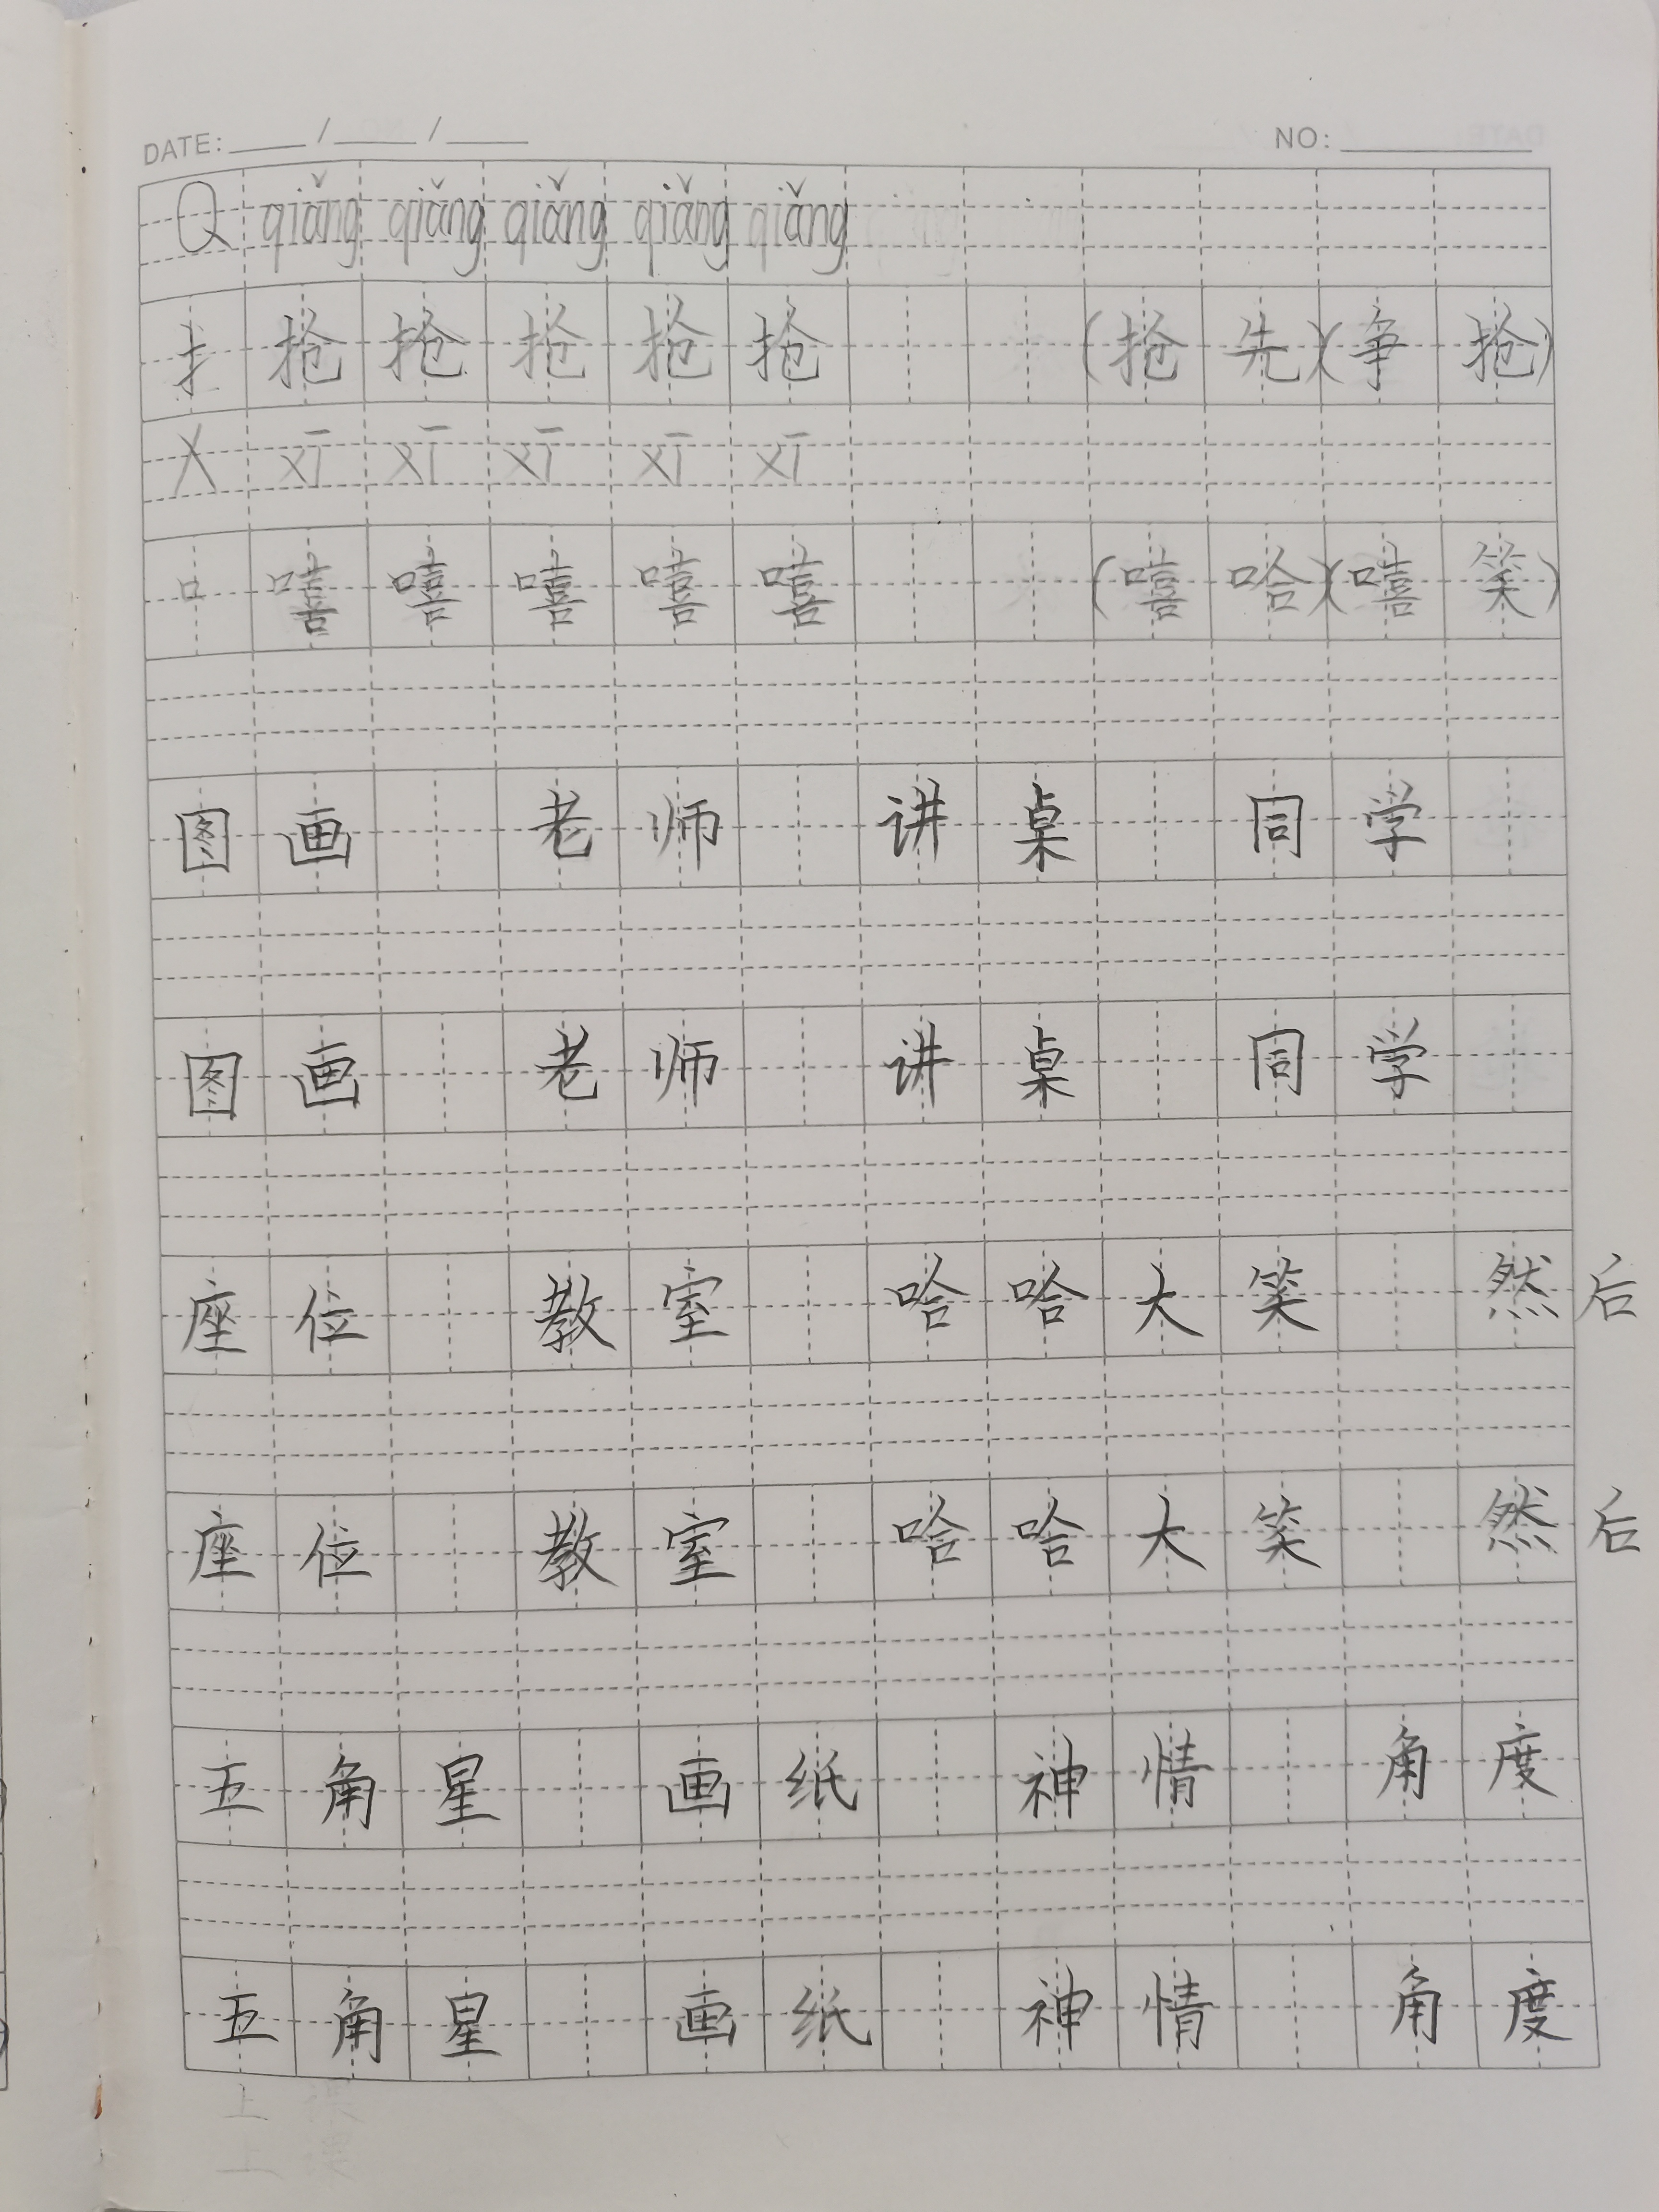 DATE: / / NO:
Q qiǎng qiǎng qiǎng qiǎng qiǎng
扌 抢 抢 抢 抢 抢 (抢先)(争抢)
X xī xī xī xī xī
口 嘻 嘻 嘻 嘻 嘻 (嘻哈)(嘻笑)
图画 老师 讲桌 同学
图画 老师 讲桌 同学
座位 教室 哈哈大笑 然后
座位 教室 哈哈大笑 然后
五角星 画纸 神情 角度
五角星 画纸 神情 角度